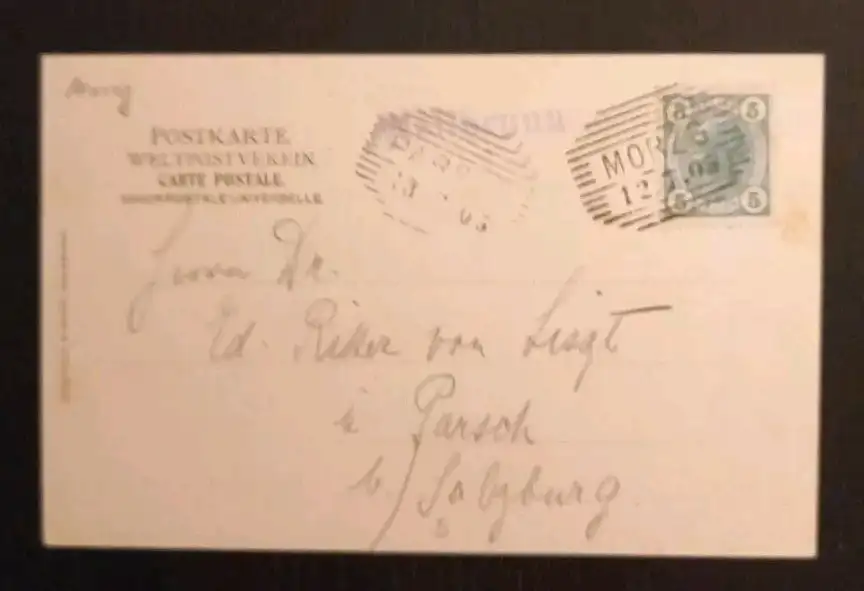 POSTKARTE
WELTPOSTVEREIN
CARTE POSTALE
UNION POSTALE UNIVERSELLE
Hellbrunn
PARSCH
13 03
5 5
MOR
12 03
5 5
Herrn Dr.
Ed. Ritter von Liszt
in Parsch
b/ Salzburg